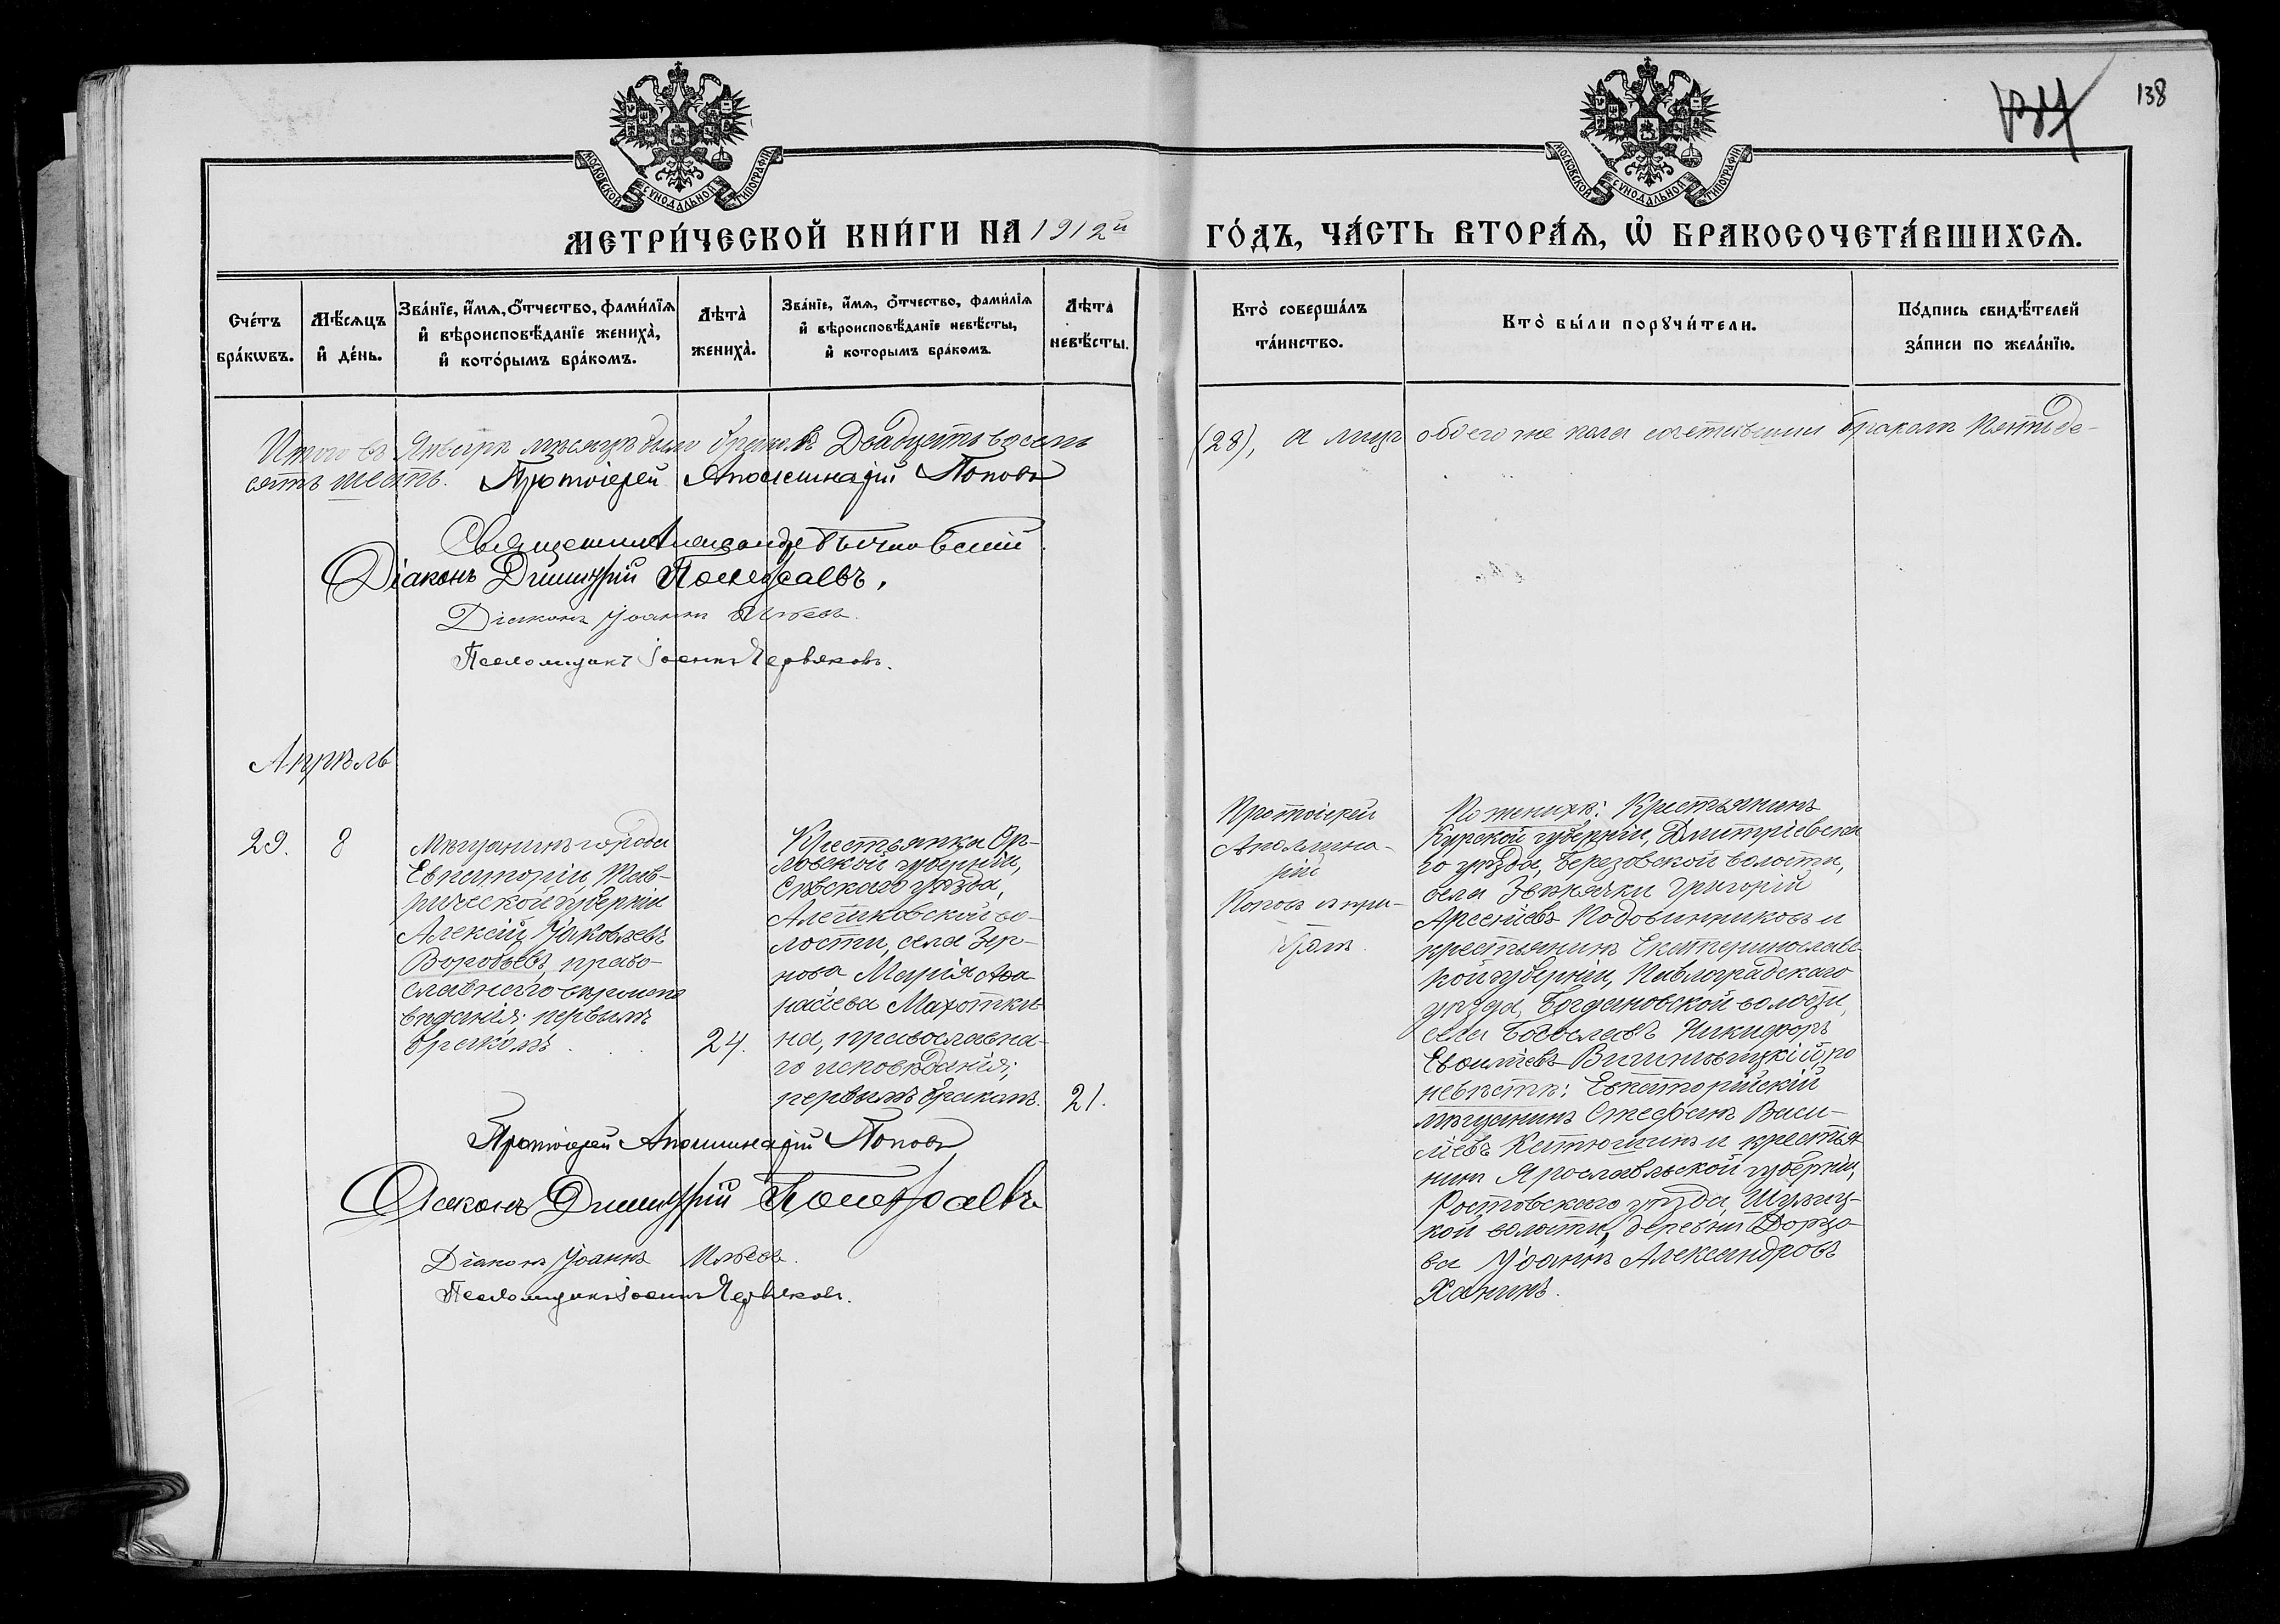 138
МОСКОВСКОЙ СѴНОДАЛЬНОЙ ТИПОГРАФІИ
МОСКОВСКОЙ СѴНОДАЛЬНОЙ ТИПОГРАФІИ
МЕТРИ́ЧЕСКОЙ КНИ́ГИ НА 1912й
ГО́ДЪ, ЧА́СТЬ ВТОРА́Ѧ, Ѡ҆ БРАКОСОЧЕТА́ВШИХСѦ.
Сче́тъ бра́кѡвъ.
Мѣ́сѧцъ и҆ де́нь.
Зва́нїе, и҆́мѧ, ѻ҆́тчество, фами́лїѧ
и҆ вѣроисповѣ́данїе жениха̀,
и҆ кото́рымъ бра́комъ.
Лѣта̀ жениха̀.
Зва́нїе, и҆́мѧ, ѻ҆́тчество, фами́лїѧ
и҆ вѣроисповѣ́данїе невѣ́сты,
и҆ которымъ бра́комъ.
Лѣта невѣ́сты.
Кто̀ соверша́лъ
та́инство.
Кто̀ бы́ли порꙋчи́тели.
По́дпись свидѣ́телей
за́писи по жела́нїю.
Итого въ Январѣ мѣсяцѣ было браковъ Двадцать восемь
(28), а лицъ обоего же пола сочетавшихся бракомъ Пятьде-
сятъ шесть. Протоіерей Аполлинарій Поповъ
Священникъ Александръ
Діаконъ Димитрій
Діаконъ Іоаннъ Ильевъ.
Псаломщикъ Іоаннъ Червяковъ.
Апрѣль
29.
8
Мѣщанинъ города
Евпаторіи, Тав-
рической губерніи
Алексій Іаковлевъ
Воробьевъ, право-
славнаго вѣроиспо
вѣданія; первымъ
бракомъ.
24.
Крестьянка Ор-
ловской губерніи,
Сѣвскаго уѣзда,
Алешковской во-
лости, села Зер-
нова Марія Аѳа
насіева Махоткѣ-
на, православна-
го исповѣданія;
первымъ бракомъ.
21.
Протоіерей
Аполлина-
рій
Поповъ
По женихѣ: Крестьянинъ
Курской губерніи, Дмитріевска
го уѣзда, Березовской волости,
села Звѣнячки Григорій
Арсеніевъ Подовинниковъ и
крестьянинъ Екатеринослав
кой губерніи, Павлоградскаго
уѣзда, Богдановской волости,
села Богославъ Никифоръ
по
невѣстѣ: Евпаторійскій
мѣщанинъ Стефанъ Васи-
ліевъ Катюшинъ и крестья
нинъ Ярославльской губерніи,
Ростовскаго уѣзда,
кой волости, деревни
ва Іоаннъ Александровъ
Ханинъ.
Протоіерей Аполлинарій Поповъ
Діаконъ Димитрій
Діаконъ Іоаннъ Ильевъ.
Псаломщикъ Іоаннъ Червяковъ.